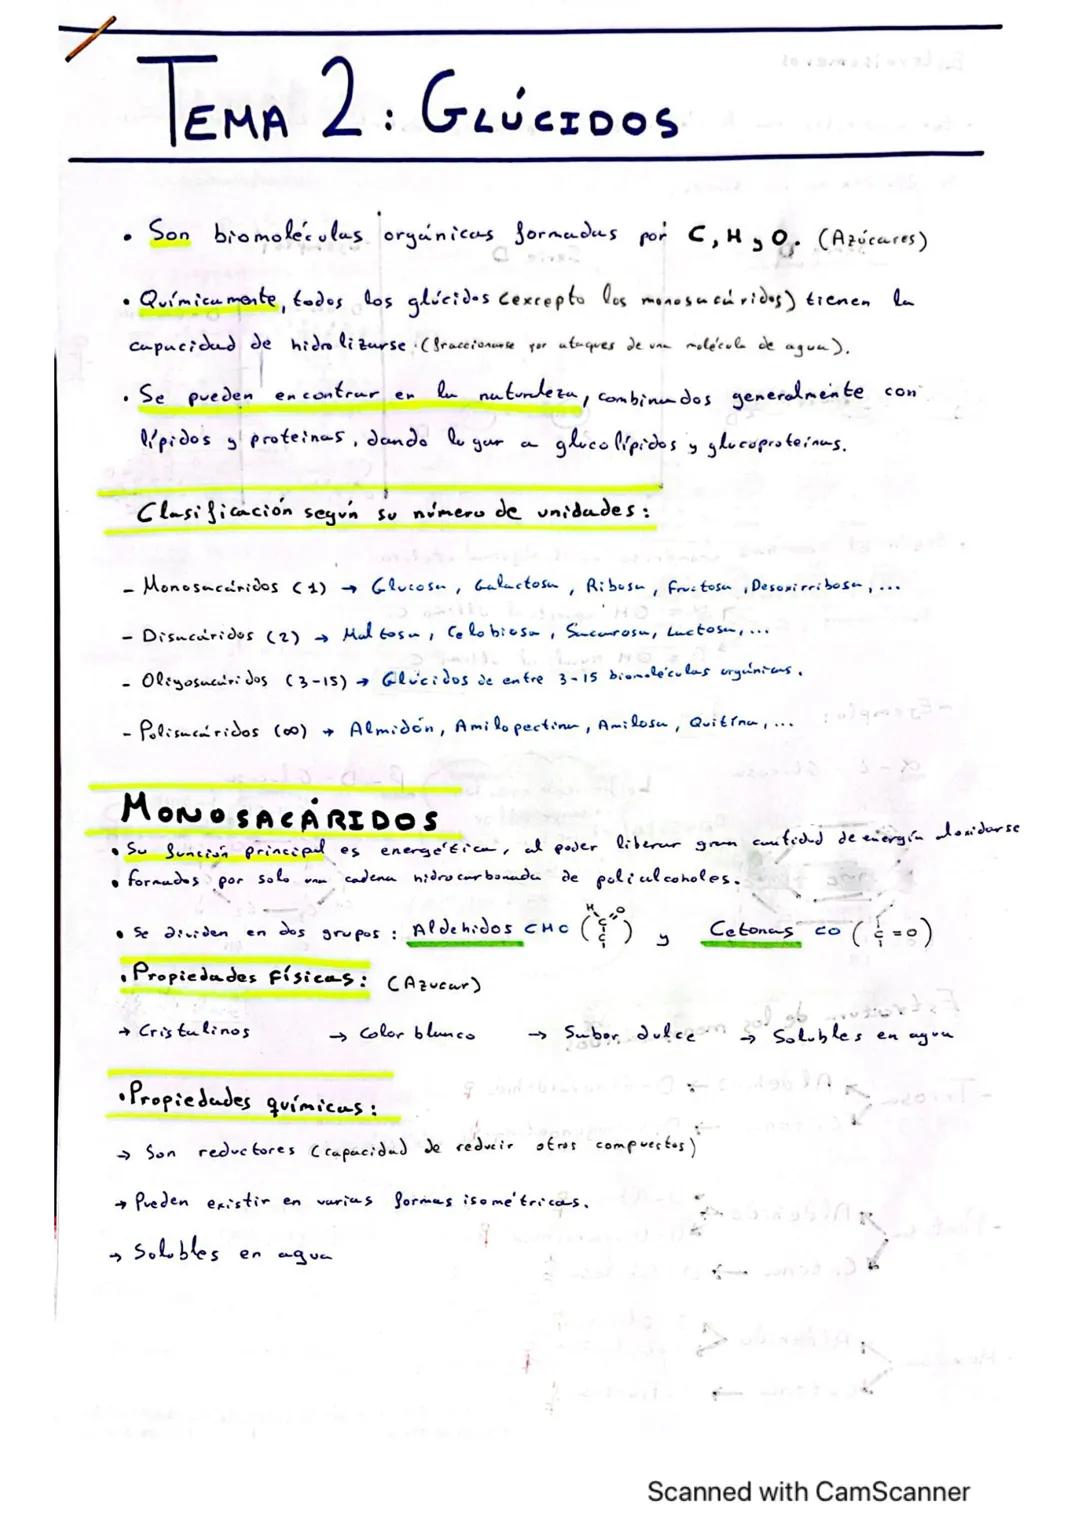 TEMA 2: GLÚCIDOS
• Son biomoléculas orgánicas formadas por C, H y O. (Azúcares)
• Químicamente, todos los glúcidos (excepto los monosacáridos) tienen la
capacidad de hidrolizarse. (fraccionarse por ataques de una molécula de agua).
• Se pueden encontrar en la naturaleza, combinados generalmente con
lípidos y proteinas, dando lugar a glucolípidos y glucoproteinas.
Clasificación según su número de unidades:
- Monosacáridos (1) → Glucosa, Galactosa, Ribosa, Fructosa, Desoxirribosa, ...
- Disacáridos (2) → Maltosa, Celobiosa, Sacarosa, Lactosa, ...
- Oligosacáridos (3-15) → Glúcidos de entre 3-15 biomoléculas orgánicas.
- Polisacáridos (∞) → Almidón, Amilopectina, Amilosa, Quitina, ...
MONOSACÁRIDOS
• Su función principal es energética, al poder liberar gran cantidad de energía al oxidarse
• formados por solo una cadena hidrocarbonada de polialcoholes.
• Se dividen en dos grupos: Aldehidos CHO (H C=O C) y Cetonas CO (C=O)
• Propiedades Físicas: (Azucar)
→ Cristalinos → Color blanco → Sabor dulce → Solubles en agua
• Propiedades químicas:
→ Son reductores (capacidad de reducir otros compuestos)
→ Pueden existir en varias formas isométricas.
→ Solubles en agua
Scanned with CamScanner